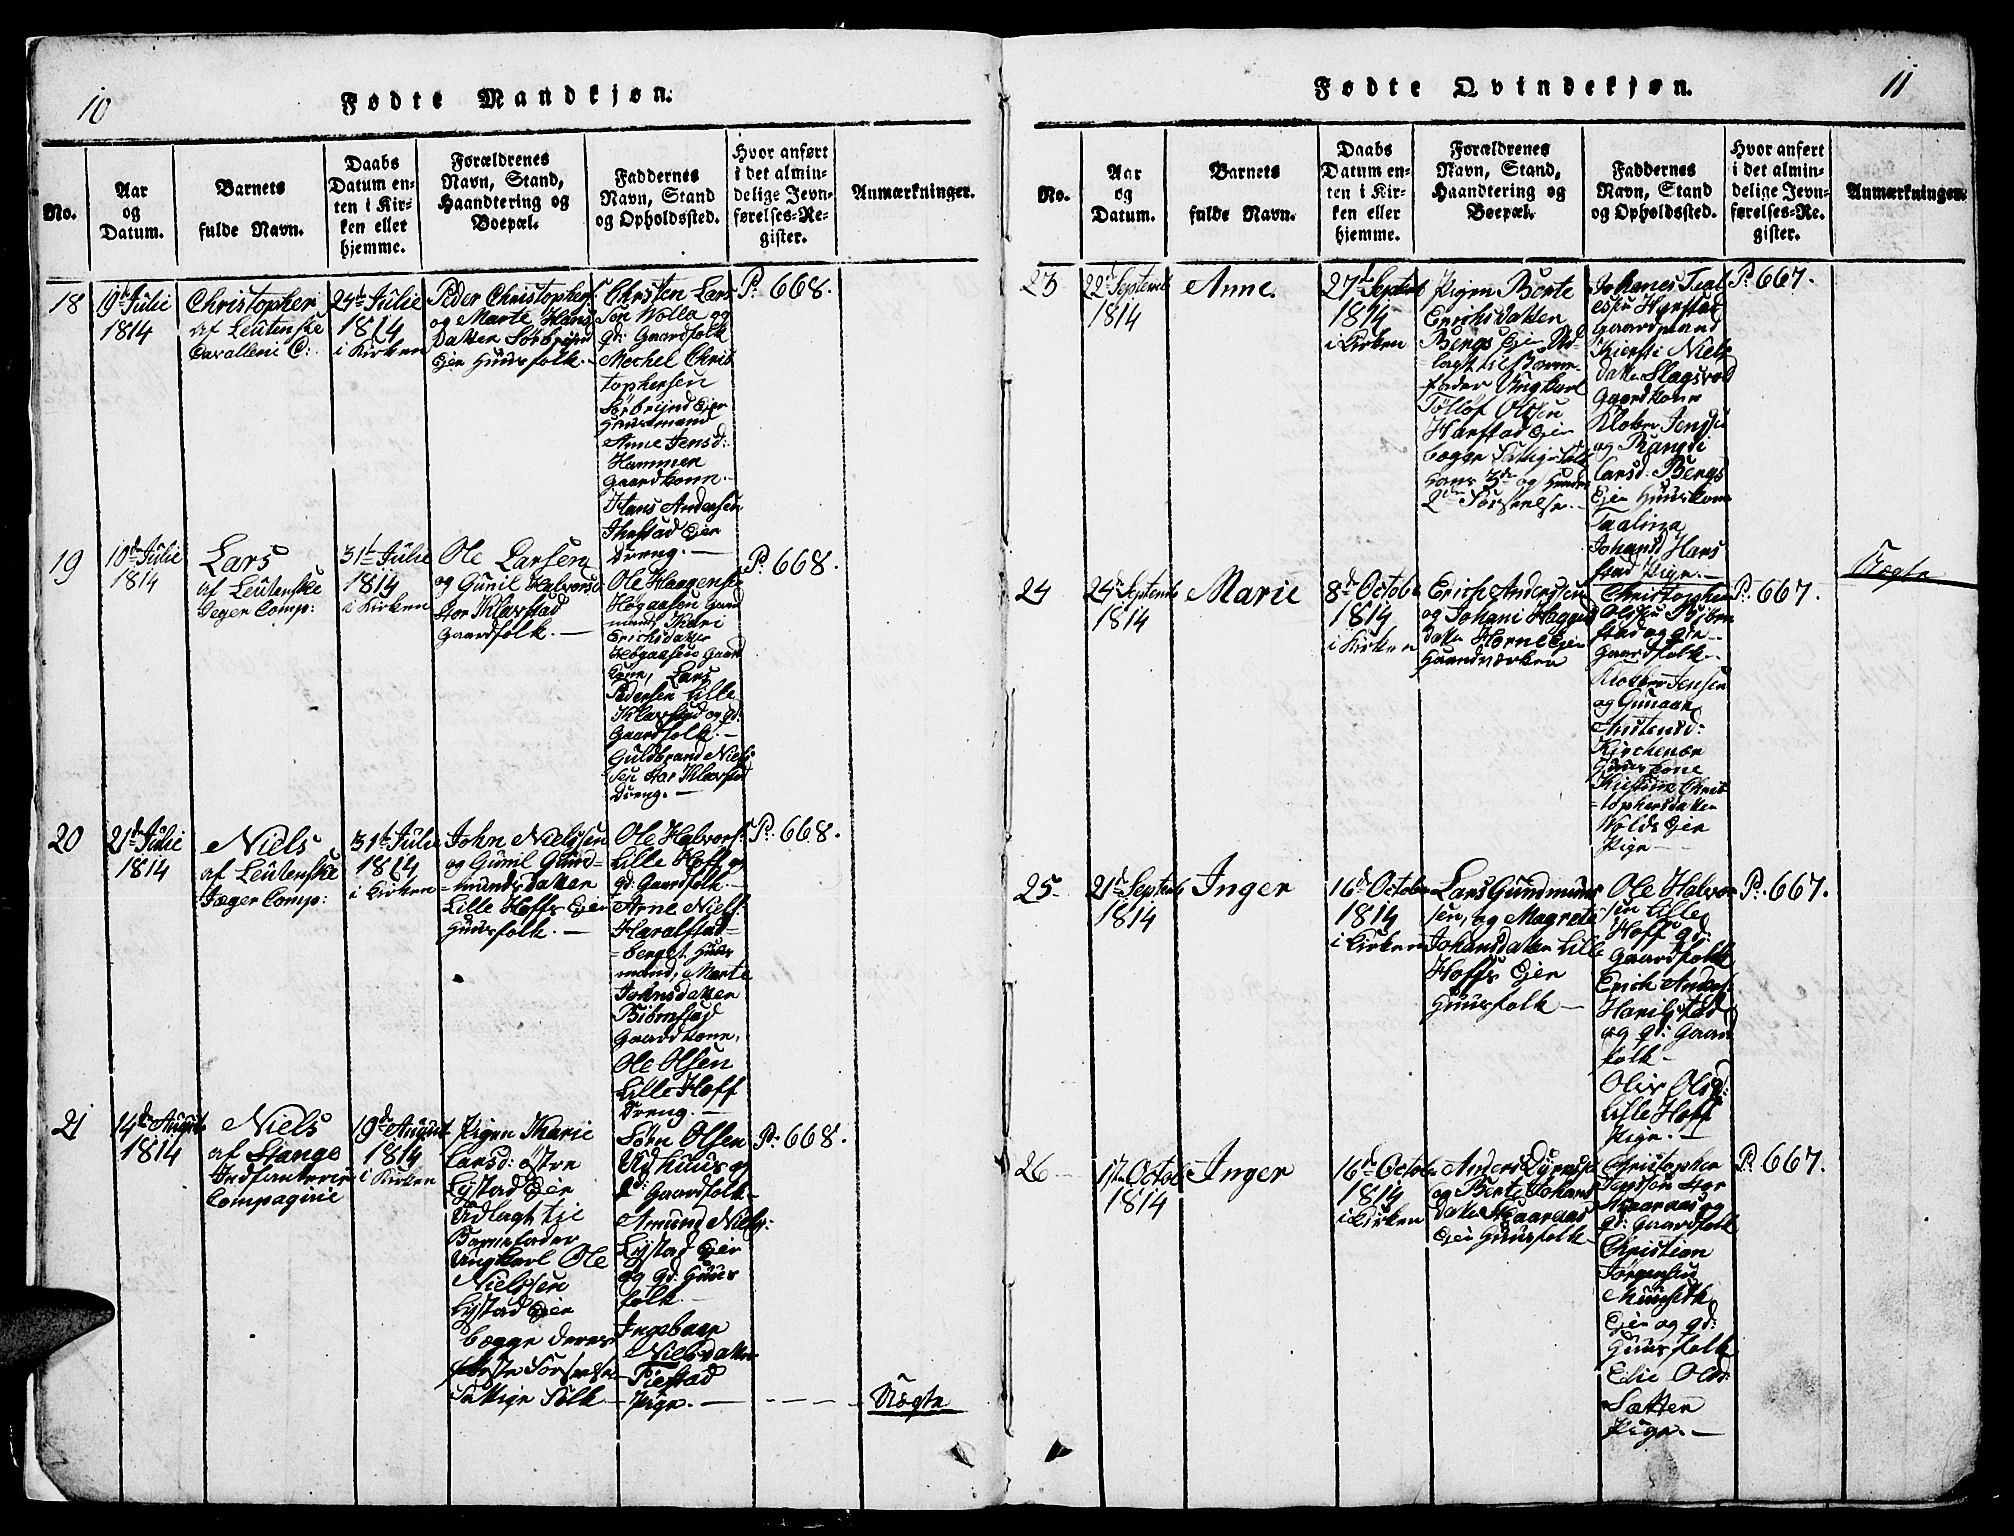 10
Fødte Mandkjøn.
No.
Aar
og
Datum.
Barnets
fulde Navn.
Daabs
Datum en-
ten i Kir-
ken eller
hjemme.
Forældrenes
Navn, Stand,
Haandtering og
Boepæl.
Faddernes
Navn, Stand
og Opholdssted.
Hvor anført
i det almin-
delige Jevn-
førelses-Re-
gister.
Anmærkninger.
18
19d Julie
1814
Christopher
af Leutenske
Cavallerie C:
24d Julie
1814
i Kirken
Peder Christophers.
og Marte Hans
Datter Sørbrijnd
Ejer Huusfolk.
Chrsten Lars
Søn Wolla og
gd: Gaardfolk
Mechel Chris
tophersen
Sørbrijnd Ejer
Huusmand
Anne Jensd:
Hammen
Gaardkonn.
Hans Andersen
Ejer
Dreng.
P: 668.
19
10de Julie
1814
Lars
af Leutenske
Jeger Comp:
31t Julie
1814
i Kirken
Ole Larsen
og Gunil Halvorsd
Stor Klavstad
Gaardfolk.
Ole Haagensen
Høgaasen Gaard
mand, Kari
Erichsdatter
Høgaasen Gaard
Kone, Lars
Pedersen Lille
Klavstad og gd:
Gaardfolk.
Guldbrand Niels
sen Stor Klavstad
Dreng.
P: 668.
20
21d Julie
1814
Niels
af Leutenske
Jæger Comp:
31t Julie
1814
i Kirken
John Nielssen
og Gunil Gund-
munds Datter
Lille Hoffs Ejer
Huusfolk.
Ole Halvors.
Lille Hoff og
gd: Gaardfolk
Arne Niels.
Haralstad-
berget Huus
mand, Marte
Johnsdatter
Biørnstad
Gaardkone,
Ole Olsen
Lille Hoff
Dreng.
P: 668.
21
14de August
1814
Niels
af Stange
Indfanterie
Compagnie
19de August
1814
i Kirken
Pigen Marie
Larsd: østre
Lystad Ejer
Udlagt til
Barnefader
Ungkarl Ole
Nielssen
Lystad Ejer
begge deres
første Forseelse
Fattige Folk
Sørn Olsen
Udhuus og
gd: Gaardfolk
Amund Niels:
Lystad Ejer
og gd: Huus
folk
Ingebaar
Nielsdatter
Fiestad
Pige.
P: 668.
Uægte
11
Fødte Qvindekjøn.
No.
Aar
og
Datum.
Barnets
fulde Navn.
Daabs
Datum en-
ten i Kir-
ken eller
hjemme.
Forældrenes
Navn, Stand,
Haandtering og
Boepæl.
Faddernes
Navn, Stand
og Opholdssted.
Hvor anført
i det almin-
delige Jevn-
førelses-Re-
gister.
Anmærkningen.
23
22d Septemb
1814
Anne.
27d Septemb
1814
i Kirken
Pigen Berte
Erichsdatter
Bergs Ejer Ud-
lagt til Barne
fader Ungkarl
Tølløf Olssen
Harstad Ejer
begge Fattige Folk
Hans 3de og Hendes
2den Forseelse.
Johanes
Harstad
Gaardmand
Kiersti Niels
datter Slagsvold
Gaardkone
Kloken Jensen
og Rangdi
Larsd: Bergs
Ejer Huuskone
Taalina
Johansd Hars
stad Pige.
P: 667.
Uægte
24
24d Septemb
1814
Marie
8d Octobr
1814
i Kirken
Erich Anderssen
og Johani Hagges
datter Horne Ejer
Haandværker
Christopher
Olssen Biørn
stad og gin
Gaardfolk
Jensen
og Gunaar
Austensd:
Kirchenær
Huuskone
Kistine Chris
tophersdatter
Wolds Ejer
Pige
P: 667.
25
21d Septemb
1814
Inger
16d Octobr
1814
i Kirken
Lars Gundmund
sen, og Magrete
Johansdatter Lille
Hoffs Ejer
Huusfolk
Ole Halvor
sen Lille
Hoff gd:
Gaardfolk
Erich Anders.
Harilstad
og gd: Gaard
folk
Oliv Olsd:
Lille Hoff
Pige.
P: 667.
26
1st Octob
1814
Inger
16d Octobr
1814
i Kirken
Anders
og Berte Johans
datter Haaraas
Ejer Huusfolk
Christopher
Jenssøn Stor
Haaraas og
gd: Gaardfolk
Christian
Jørgensen
Ejer og gd:
Huusfolk
Elie Olsd:
Sætter
Pige.
P: 667.